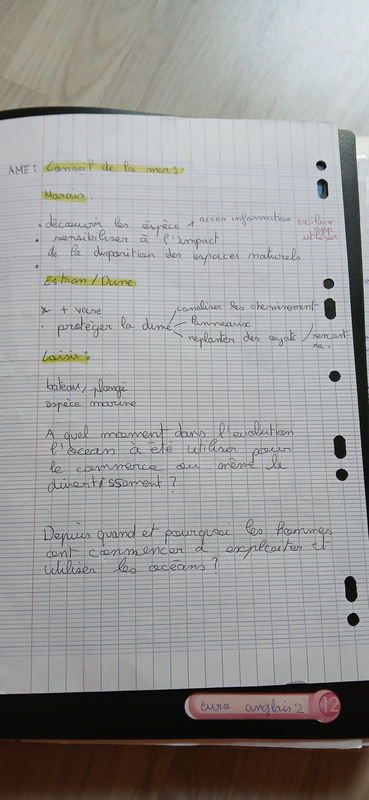 AME : Conseil de la mer :
Marais
. découvrir les espèce + acces information
. sensibiliser à l'impact
de la disparition des espaces naturels
.
Estran / Dune
+ vase canaliser les cheminement
. protéger la dune Panneaux
replanter des oyats /
Loisir :
bateau, plongé
espèce marine
A quel moment dans l'évolution
l'océan à été utiliser pour
le commerce ou même le
divertissement ?
Depuis quand et pourquoi les hommes
ont commencer à exploiter et
utiliser les océans ?
euro anglais 2 12